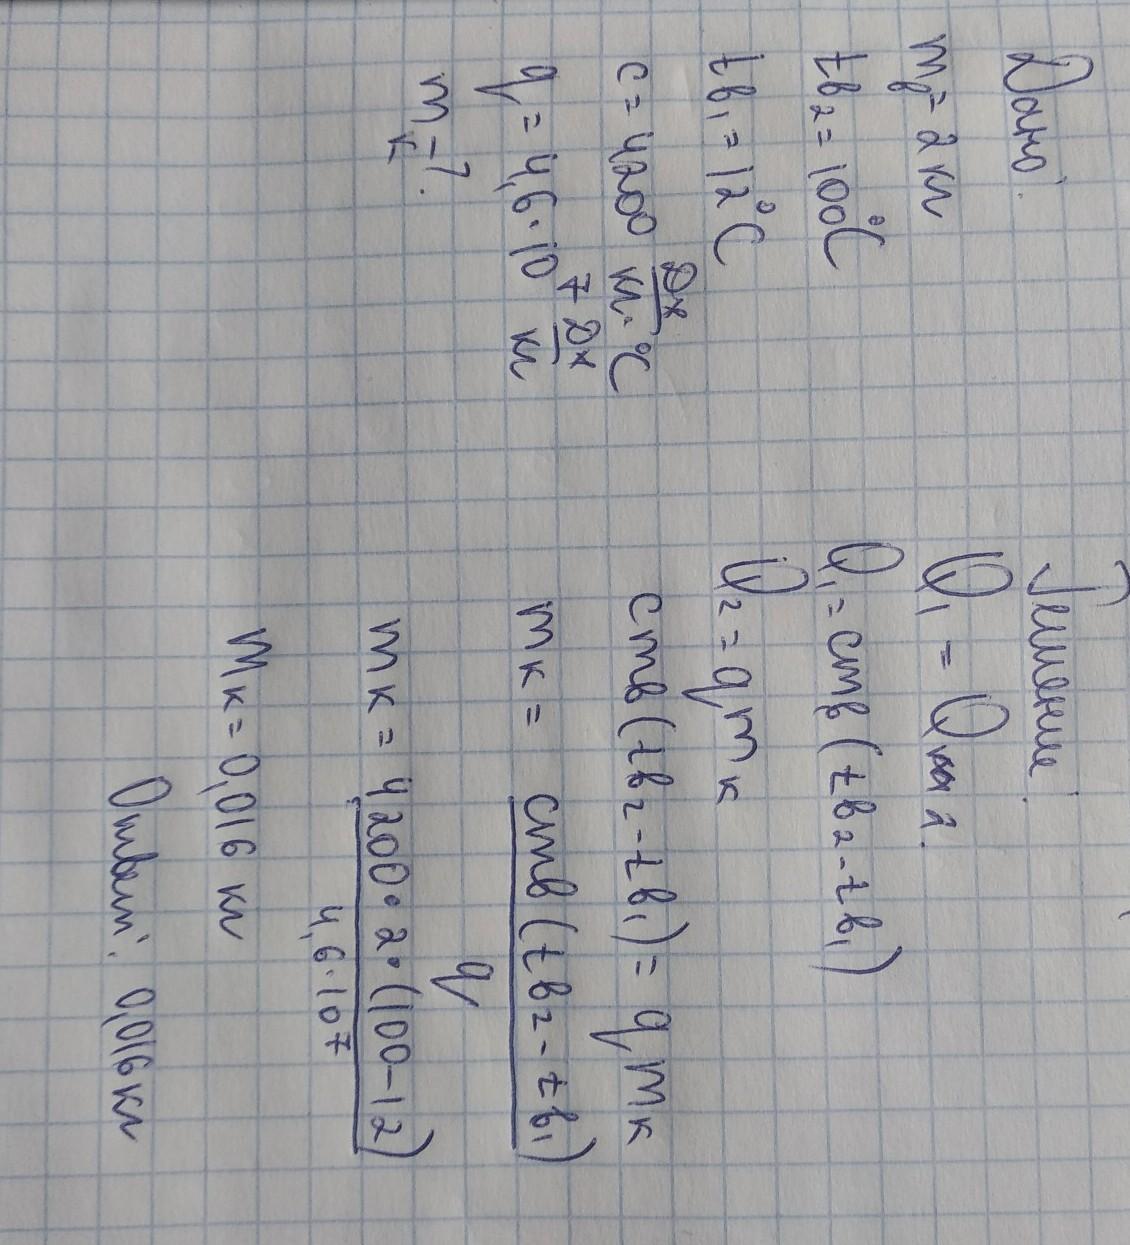 Дано:
mв = 2 кг
tв₂ = 100°C
tв₁ = 12°C
c = 4200 Дж/кг·°C
q = 4,6·10⁷ Дж/кг
mк - ?
Решение:
Q₁ = Q₂.
Q₁ = cmв (tв₂ - tв₁)
Q₂ = qmк
cmв (tв₂ - tв₁) = qmк
mк = cmв (tв₂ - tв₁) / q
mк = 4200·2·(100-12) / 4,6·10⁷
mк = 0,016 кг
Ответ: 0,016 кг